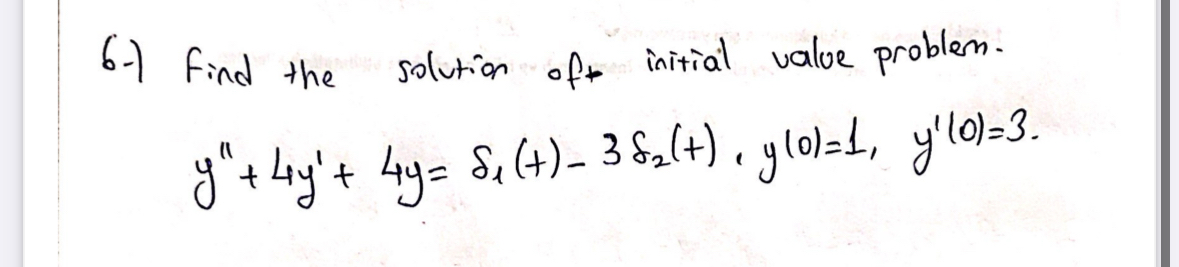 6-) Find the solution of initial value problem.
y'' + 4y' + 4y = δ₁(t) - 3δ₂(t), y(0)=1, y'(0)=3.